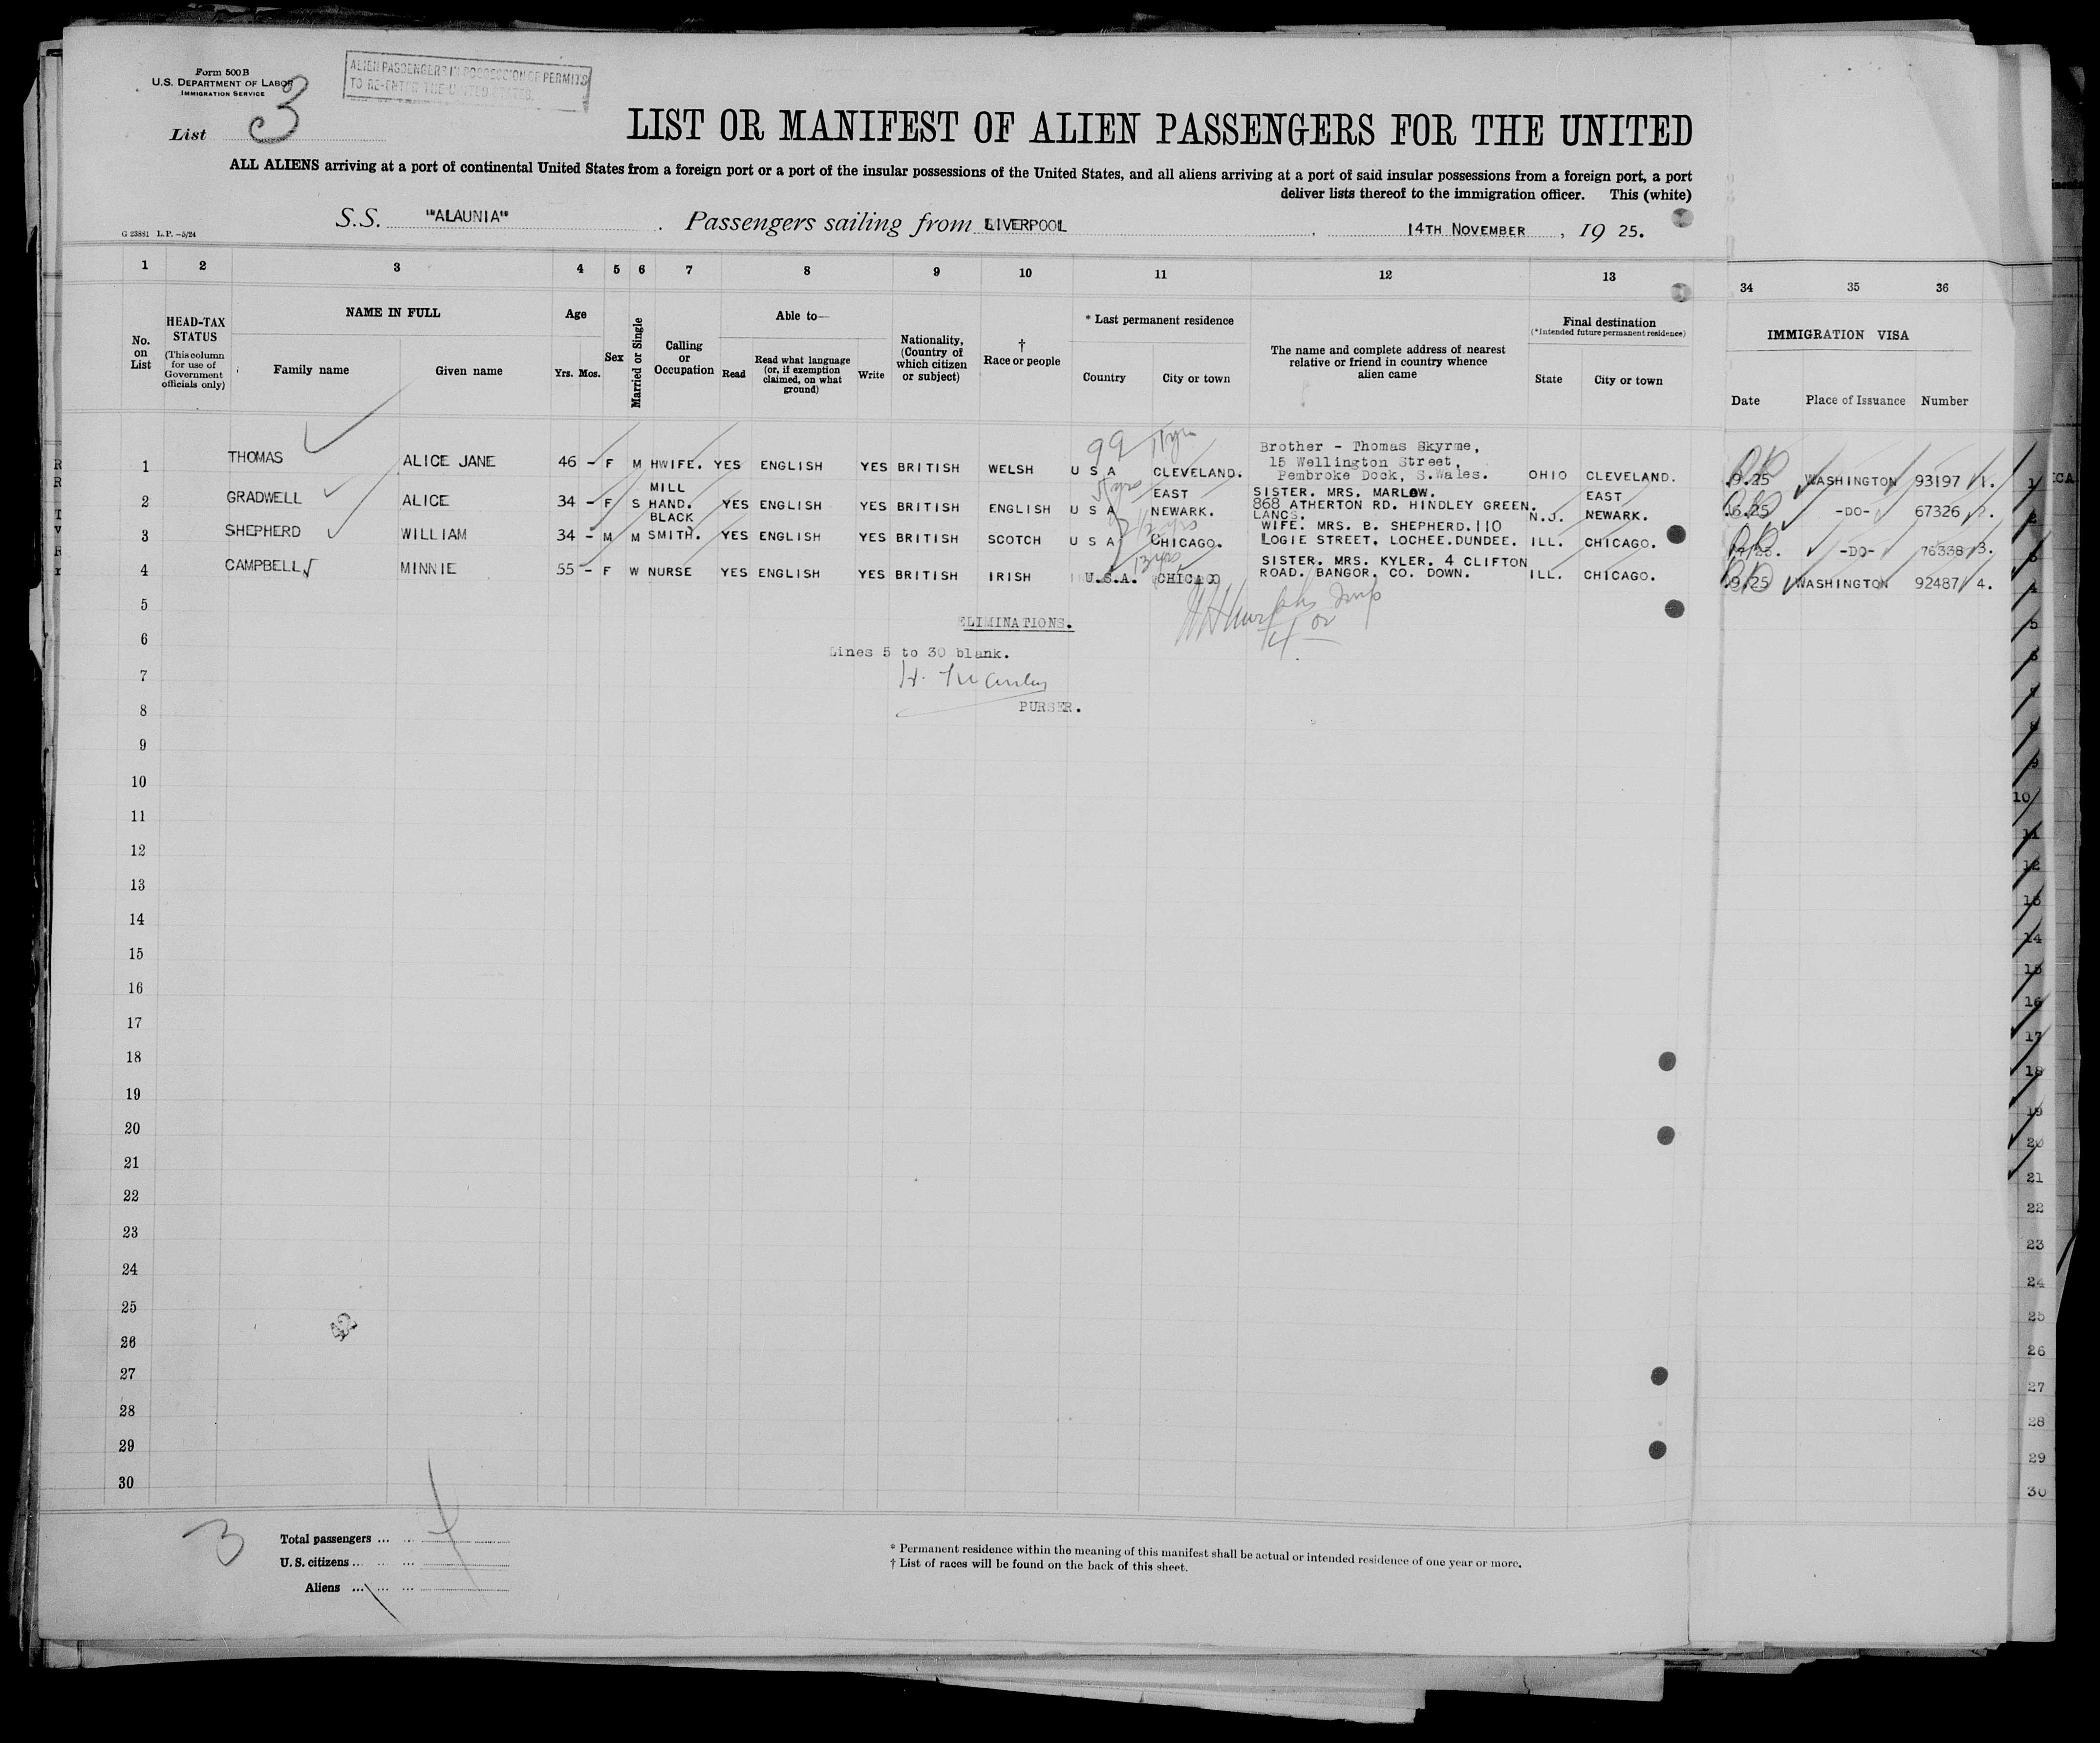 Form 500 B
U.S. DEPARTMENT OF LABOR
IMMIGRATION SERVICE
List 3
ALIEN PASSENGERS IN POSSESSION OF PERMITS
TO RE-ENTER THE UNITED STATES.
LIST OR MANIFEST OF ALIEN PASSENGERS FOR THE UNITED
ALL ALIENS arriving at a port of continental United States from a foreign port or a port of the insular possessions of the United States, and all aliens arriving at a port of said insular possessions from a foreign port, a port
deliver lists thereof to the immigration officer. This (white)
S.S. "ALAUNIA" . Passengers sailing from LIVERPOOL , 14TH NOVEMBER , 19 25.
G 23881 L.P. -5/24
1 2 3 4 5 6 7 8 9 10 11 12 13 34 35 36
No. on List
HEAD-TAX STATUS
(This column for use of Government officials only)
NAME IN FULL
Family name
Given name
Age
Yrs. Mos.
Sex
Married or Single
Calling or Occupation
Able to—
Read
Read what language (or, if exemption claimed, on what ground)
Write
Nationality, (Country of which citizen or subject)
† Race or people
* Last permanent residence
Country
City or town
The name and complete address of nearest relative or friend in country whence alien came
Final destination
(*Intended future permanent residence)
State
City or town
IMMIGRATION VISA
Date
Place of Issuance
Number
99 11yrs
1 THOMAS ALICE JANE 46 - F M HWIFE. YES ENGLISH YES BRITISH WELSH U S A CLEVELAND. Brother - Thomas Skyrme, 15 Wellington Street, Pembroke Dock, S.Wales. OHIO CLEVELAND. .9.25 WASHINGTON 93197 1.
2 GRADWELL ALICE 34 - F S MILL HAND. YES ENGLISH YES BRITISH ENGLISH U S A EAST NEWARK. SISTER. MRS. MARLOW. 868 ATHERTON RD. HINDLEY GREEN. LANCS. N.J. EAST NEWARK. .6.25 -DO- 67326 2.
3 SHEPHERD WILLIAM 34 - M M BLACK SMITH. YES ENGLISH YES BRITISH SCOTCH U S A CHICAGO. WIFE. MRS. B. SHEPHERD. 110 LOGIE STREET. LOCHEE. DUNDEE. ILL. CHICAGO. -DO- 76338 3.
13yrs
4 CAMPBELL MINNIE 55 - F W NURSE YES ENGLISH YES BRITISH IRISH U.S.A. CHICAGO SISTER. MRS. KYLER. 4 CLIFTON ROAD. BANGOR. CO. DOWN. ILL. CHICAGO. .9.25 WASHINGTON 92487 4.
5
ELIMINATIONS.
6
Lines 5 to 30 blank.
7
8
PURSER.
9
10
11
12
13
14
15
16
17
18
19
20
21
22
23
24
25
26
27
28
29
30
3
Total passengers ... ...
U. S. citizens ... ... ...
Aliens ... ... ...
* Permanent residence within the meaning of this manifest shall be actual or intended residence of one year or more.
† List of races will be found on the back of this sheet.